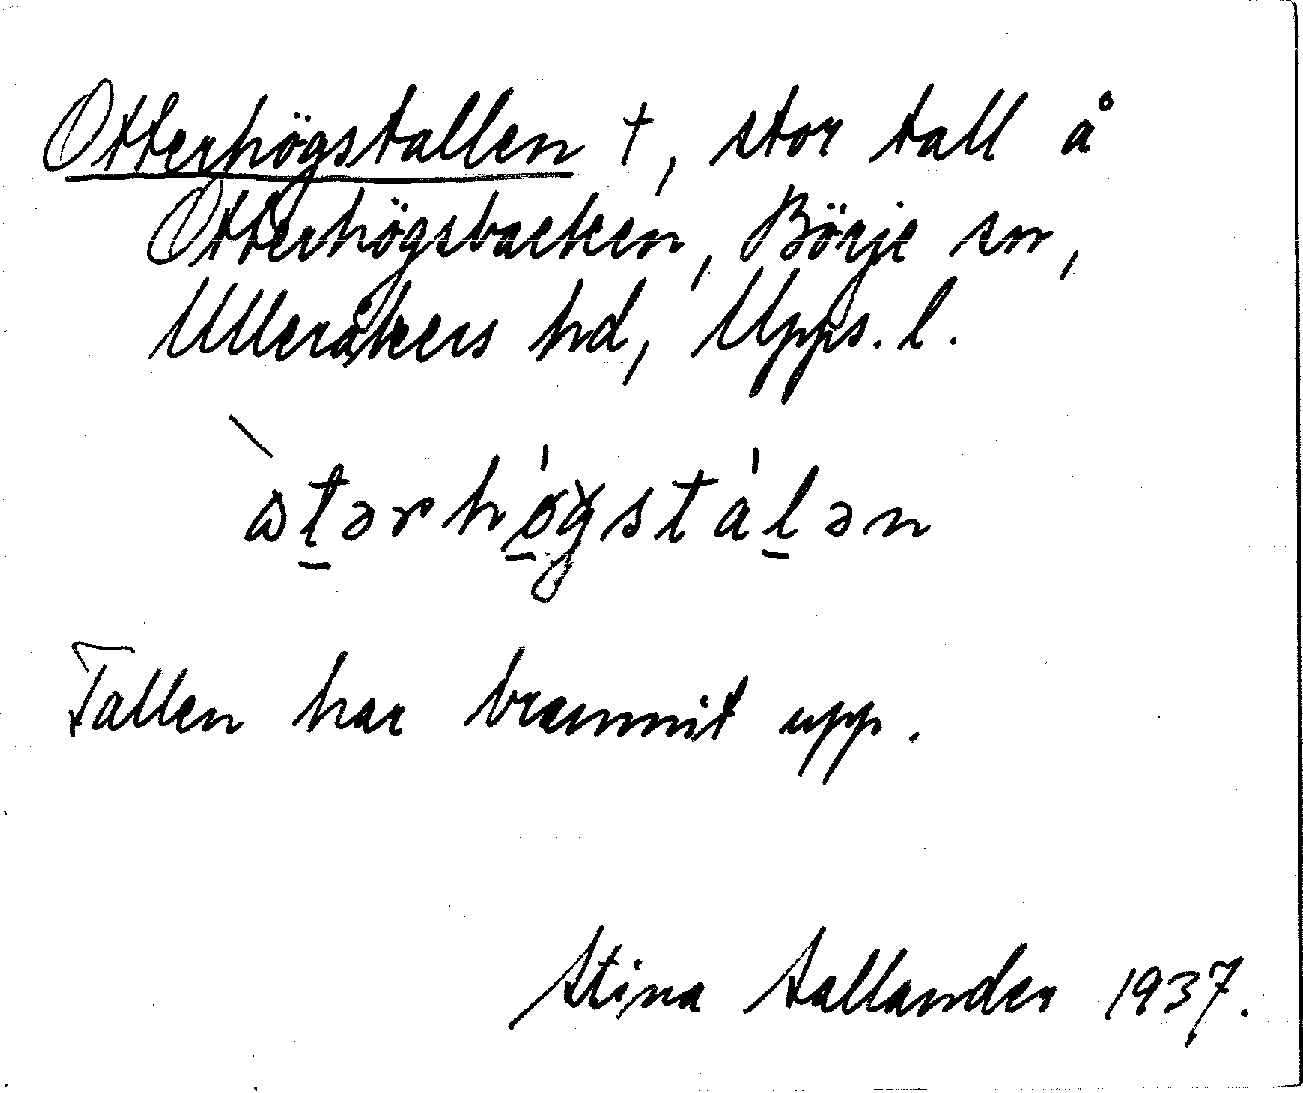 Otterhögstallen †, stor tall å
Otterhögsbacken, Börje sn,
Ulleråkers hd, Upps. l.
Tallen har brunnit upp.
Stina 1937.